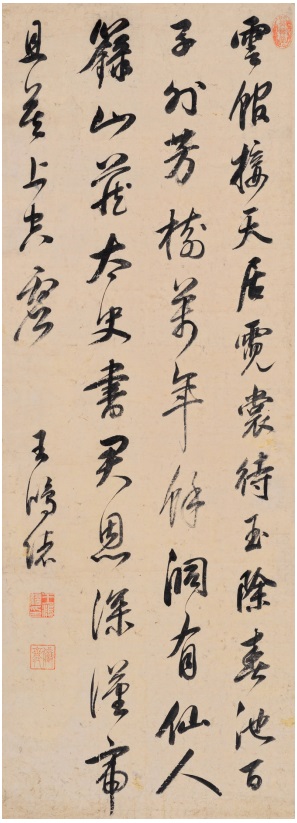 雲館接天居霓裳待玉除春池百
子外芳樹萬年餘洞有仙人
籙山藏太史書君恩深漢帝
且莫上空虛
王鴻緒